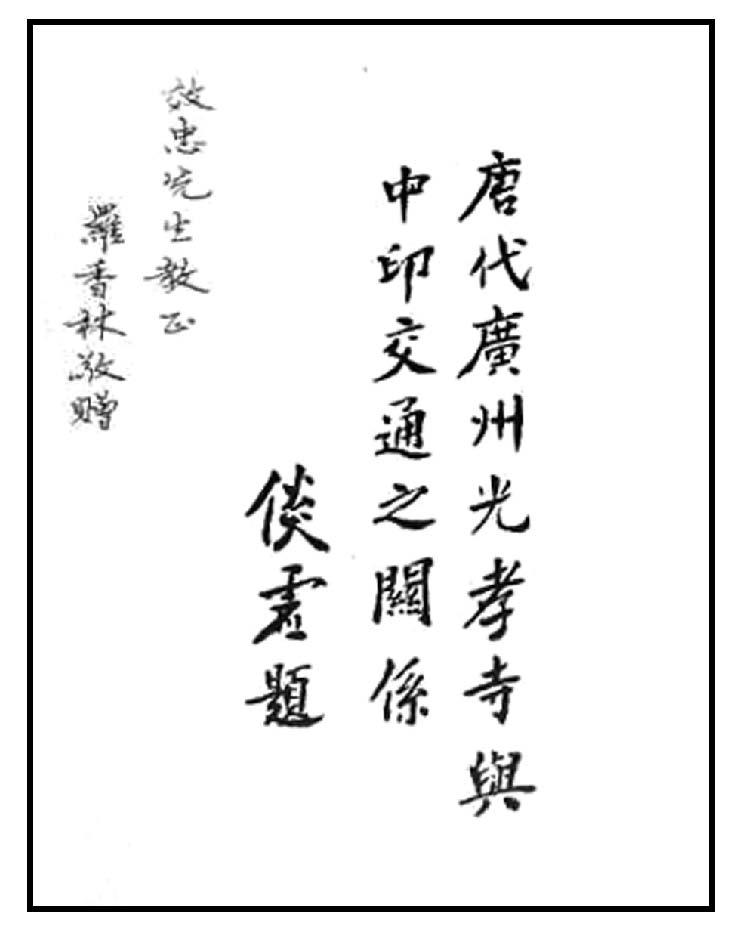 唐代廣州光孝寺與
中印交通之關係
倓虛題
效忠先生教正
羅香林敬贈